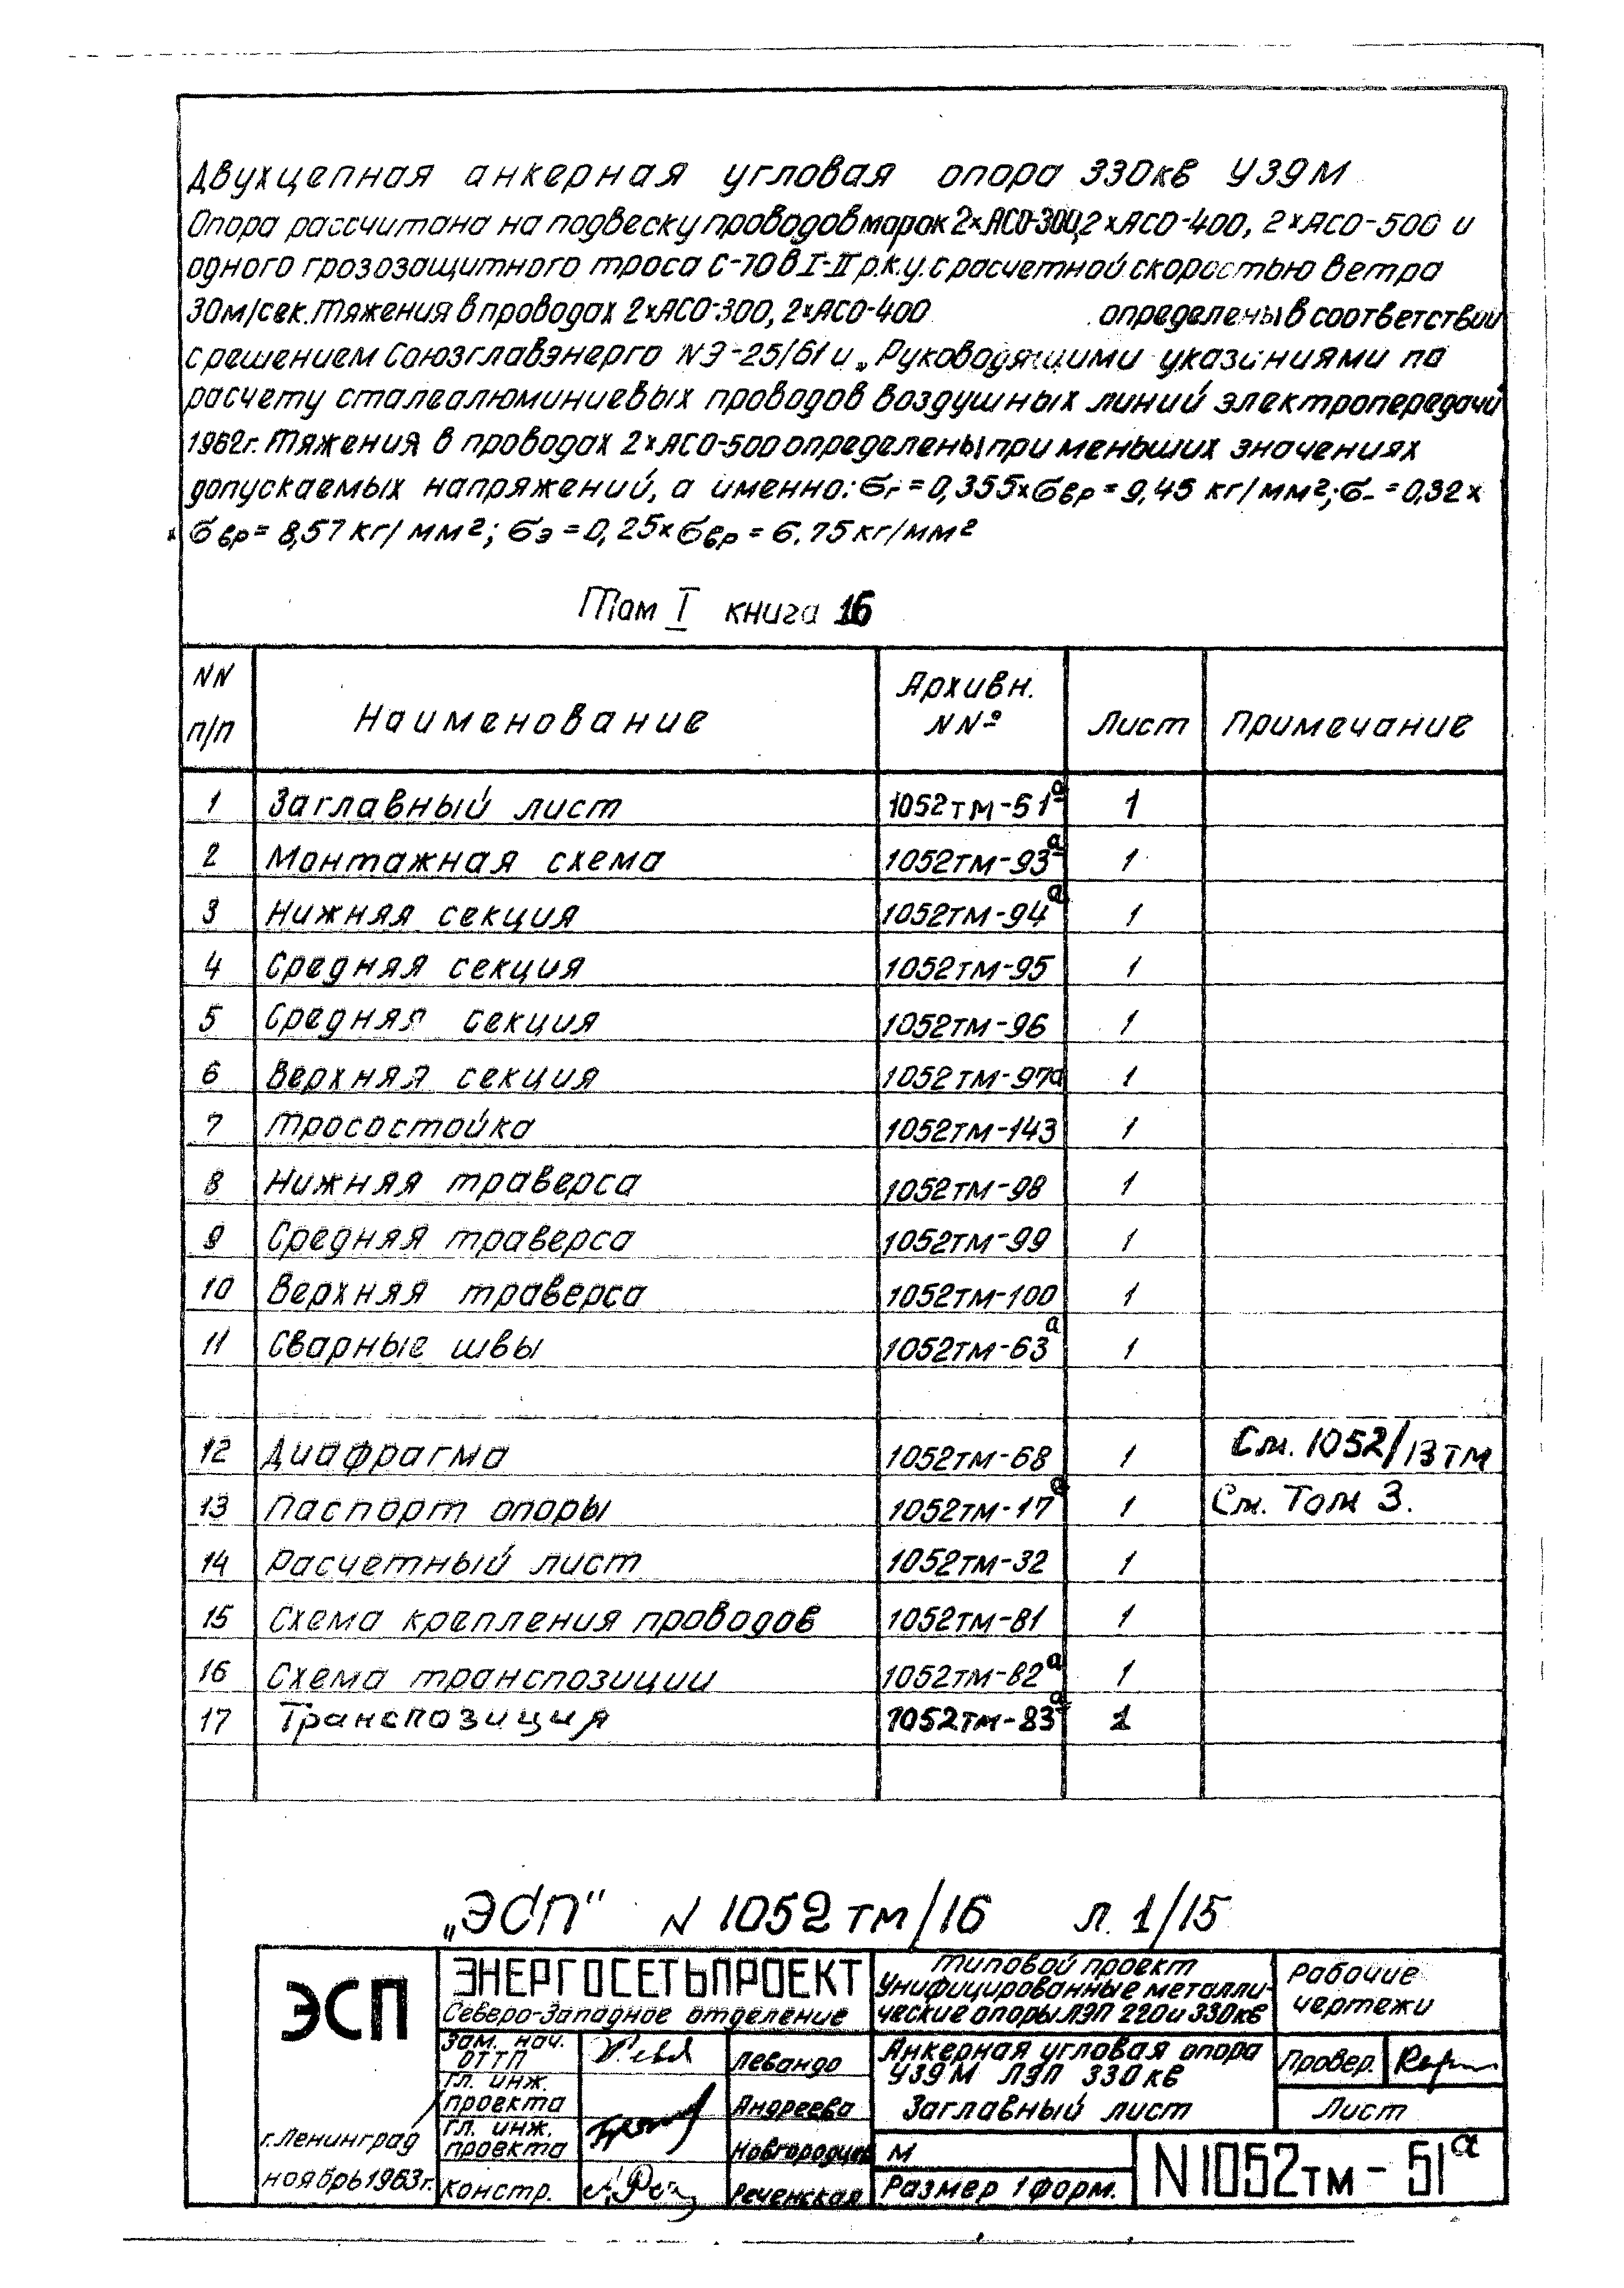 Двухцепная анкерная угловая опора 330кв У39М
Опора рассчитана на подвеску проводов марок 2×АСО-300, 2×АСО-400, 2×АСО-500 и
одного грозозащитного троса С-70 в I-II р.к.у. с расчетной скоростью ветра
30м/сек. Тяжения в проводах 2×АСО-300, 2×АСО-400 определены в соответствии
с решением Союзглавэнерго NЭ-25/61 и „Руководящими указаниями по
расчету сталеалюминиевых проводов воздушных линий электропередачи
1962г. Тяжения в проводах 2×АСО-500 определены при меньших значениях
допускаемых напряжений, а именно: σг = 0,355×σвр = 9,45 кг/мм²; σ- = 0,32×
× σвр = 8,57 кг/мм²; σэ = 0,25×σвр = 6.75 кг/мм²
Том I книга 16
NN п/п Наименование Архивн. NNº Лист Примечание
1 Заглавный лист 1052тм-51а 1
2 Монтажная схема 1052тм-93а 1
3 Нижняя секция 1052тм-94а 1
4 Средняя секция 1052тм-95 1
5 Средняя секция 1052тм-96 1
6 Верхняя секция 1052тм-97а 1
7 Тросостойка 1052тм-143 1
8 Нижняя траверса 1052тм-98 1
9 Средняя траверса 1052тм-99 1
10 Верхняя траверса 1052тм-100 1
11 Сварные швы 1052тм-63а 1
12 Диафрагма 1052тм-68 1 См. 1052/13тм
13 Паспорт опоры 1052тм-17а 1 См. Том 3.
14 Расчетный лист 1052тм-32 1
15 Схема крепления проводов 1052тм-81 1
16 Схема транспозиции 1052тм-82а 1
17 Транспозиция 1052тм-83а 1
„ЭСП" N 1052 тм/16 л. 1/15
ЭСП
г. Ленинград
ноябрь 1963г.
ЭНЕРГОСЕТЬПРОЕКТ
Северо-Западное отделение
Зам. нач. ОТТП Левандо
Гл. инж. проекта Андреева
Гл. инж. проекта Новгородцев
Констр. Реченская
Типовой проект
Унифицированные металли-
ческие опоры ЛЭП 220 и 330кв
Рабочие
чертежи
Анкерная угловая опора
У39М ЛЭП 330кв
Заглавный лист
Провер.
Лист
М
Размер 1 форм.
N1052тм-51а